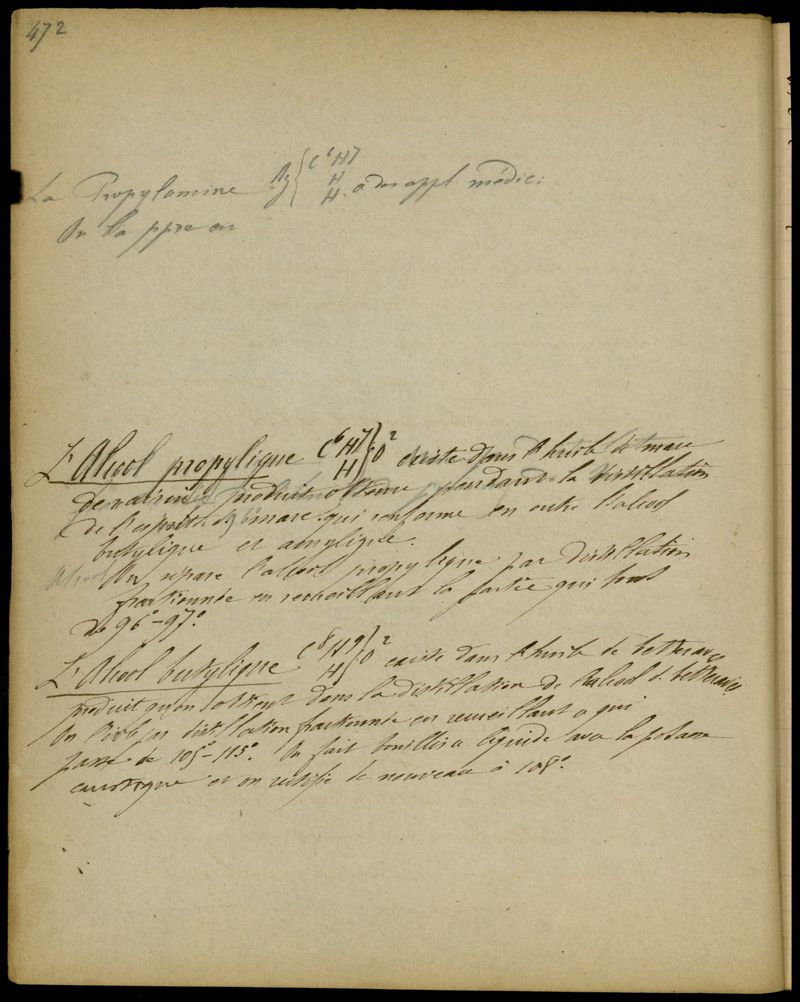 472
La Propylamine Az { C⁶H⁷ H H a des appl. médic:
On la ppre en
L'Alcool propylique C⁶H⁷ H } O² existe dans l'huile de marc
de raisin produit obtenu pendant la distillation
de l'esprit de marc qui renferme en outre l'alcool
butylique et amylique.
On sépare l'alcool propylique par distillation
fractionnée en recueillant la partie qui bout
de 96°-97°.
L'Alcool butylique C⁸H⁹ H } O² existe dans l'huile de betterave
produit qu'on obtient dans la distillation de l'alcool d. betterave
On l'isole pr distillation fractionnée en recueillant ce qui
passe de 105°-115°. On fait bouillir ce liquide avec la potasse
caustique et on rectifie de nouveau à 108°.